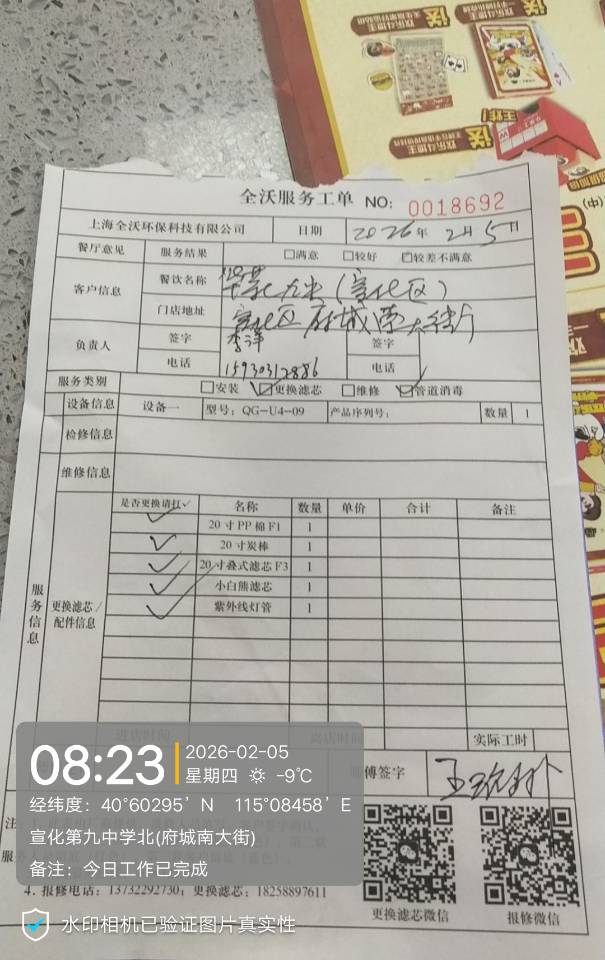 全沃服务工单 NO: 0018692
上海全沃环保科技有限公司 日期 2026年 2月5日
餐厅意见 服务结果 □满意 □较好 □较差不满意
客户信息 餐饮名称 (宣化区)
门店地址 宣化区府城南大街
负责人 签字 李泽 签字
电话 15930312886 电话
服务类别 □安装 ☑更换滤芯 □维修 ☑管道消毒
设备信息 设备一 型号:QG-U4-09 产品序列号: 数量 1
检修信息
维修信息
服务信息
更换滤芯/配件信息
是否更换请打✓ 名称 数量 单价 合计 备注
✓ 20寸PP棉F1 1
✓ 20寸炭棒 1
✓ 20寸叠式滤芯F3 1
✓ 小白熊滤芯 1
✓ 紫外线灯管 1
进店时间 离店时间 实际工时
师傅签字
注
服
4. 报修电话:13732292730;更换滤芯:18258897611
更换滤芯微信 报修微信
08:23
2026-02-05
星期四 -9℃
经纬度:40°60295′N 115°08458′E
宣化第九中学北(府城南大街)
备注:今日工作已完成
水印相机已验证图片真实性
送
欢乐斗地主
送
欢乐斗地主
王炸!
送